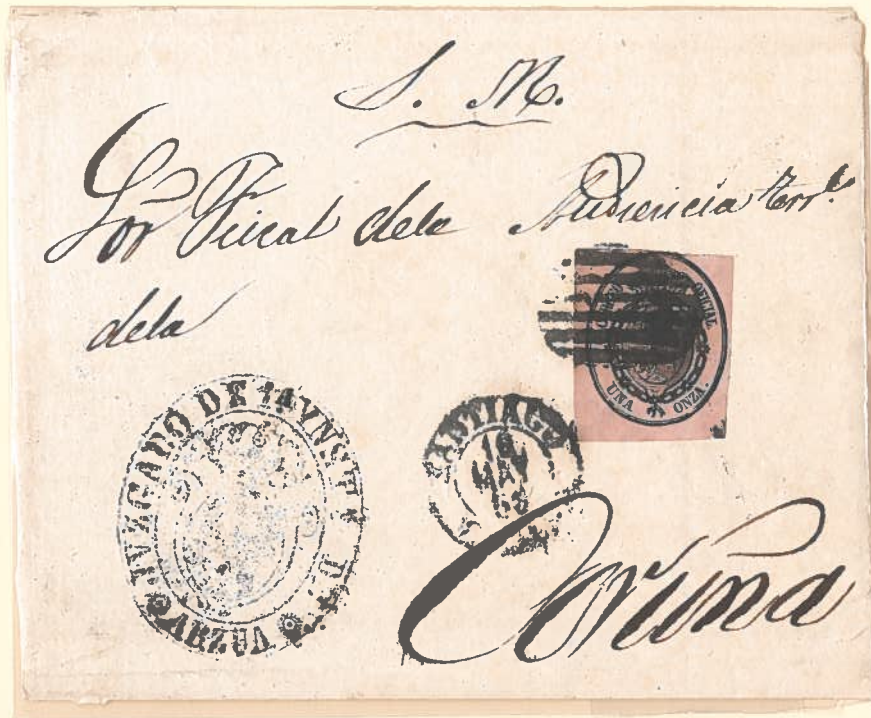 S. M.
Sor Fiscal dela Audiencia terrl.
dela
OFICIAL
UNA ONZA.
JUZGADO DE 1A YNSTA D.
ARZUA
SANTIAGO
16
MAY
Coruña